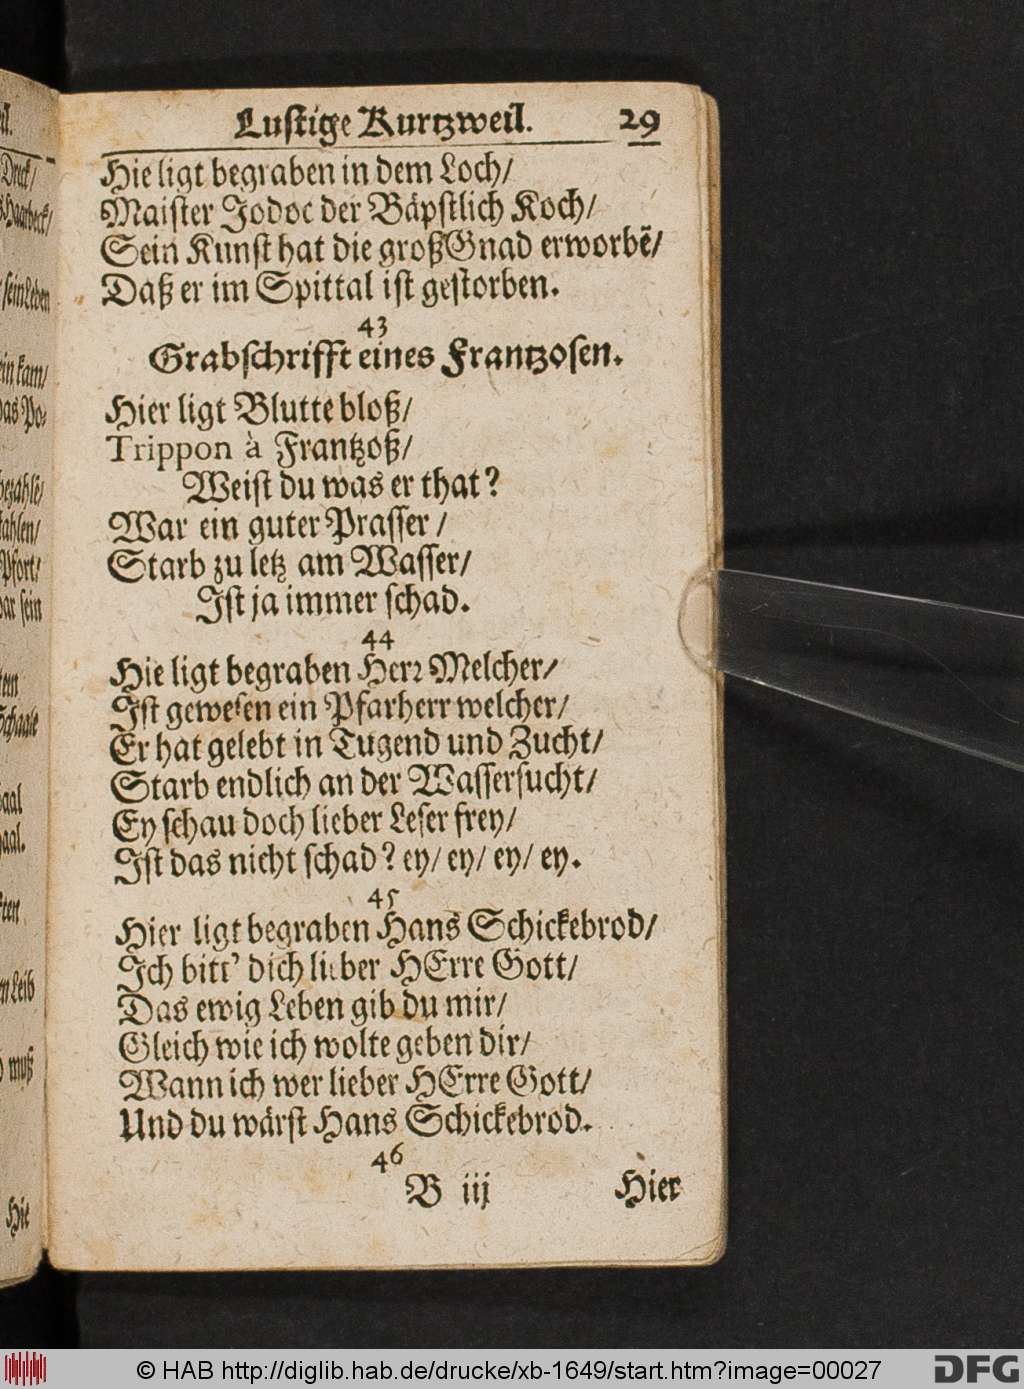 Lustige Kurtzweil. 29
Hie ligt begraben in dem Loch/
Maister Jodoc der Bäpstlich Koch/
Sein Kunst hat die groß Gnad erworbẽ/
Daß er im Spittal ist gestorben.
43
Grabschrifft eines Frantzosen.
Hier ligt Blutte bloß/
Trippon à Frantzoß/
Weist du was er that?
War ein guter Prasser/
Starb zu letz am Wasser/
Ist ja immer schad.
44
Hie ligt begraben Herr Melcher/
Ist gewesen ein Pfarherr welcher/
Er hat gelebt in Tugend und Zucht/
Starb endlich an der Wassersucht/
Ey schau doch lieber Leser frey/
Ist das nicht schad? ey/ ey/ ey/ ey.
45
Hier ligt begraben Hans Schickebrod/
Ich bitt' dich lieber HErre Gott/
Das ewig Leben gib du mir/
Gleich wie ich wolte geben dir/
Wann ich wer lieber HErre Gott/
Und du wärst Hans Schickebrod.
46
B iij Hier
© HAB http://diglib.hab.de/drucke/xb-1649/start.htm?image=00027
DFG